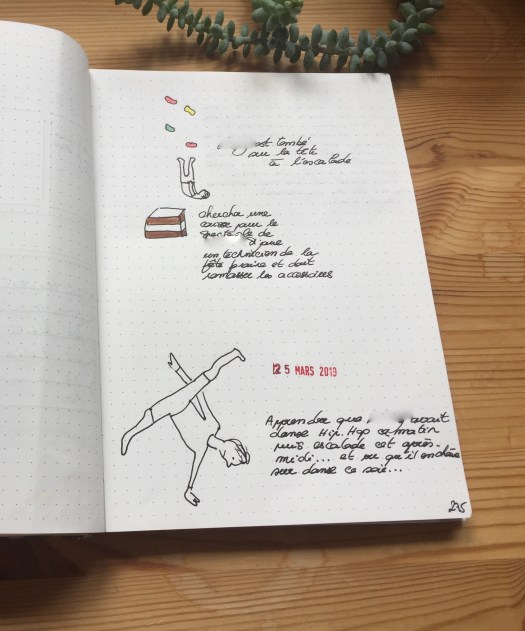 est tombé
sur la tête
à l'escalade
chercher une
caisse pour le
spectacle de
Il joue
un technicien de la
fête foraine et doit
ramasser les accessoires
25 MARS 2019
Apprendre que avait
danse Hip.Hop ce matin
puis escalade cet après-
midi... et vu qu'il enchaîne
sur danse ce soir...
235